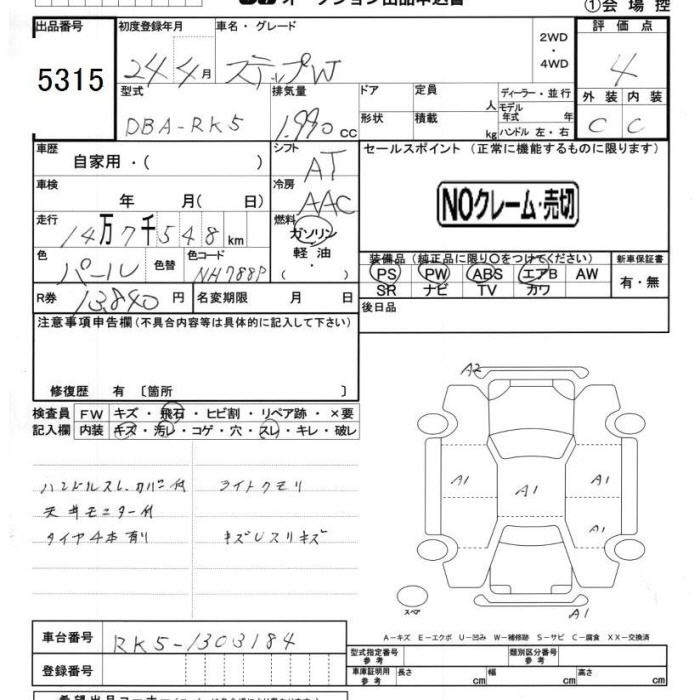 オークション出品申込書
①会場控
出品番号 5315
初度登録年月 24 4月
車名・グレード ステップW
2WD・4WD
評価点 4
外装 内装
C C
型式 DBA-RK5
排気量 1.990 cc
ドア 定員 人
形状 積載 kg
ディーラー・並行
モデル年式 年
ハンドル 左・右
車歴 自家用・( )
シフト AT
車検 年 月( 日)
冷房 AAC
走行 14万7千548km
燃料 ガソリン・軽油 ( ・ )
色 パール 色替 色コード NH788P
R券 13,840円 名変期限 月 日
セールスポイント (正常に機能するものに限ります)
NOクレーム・売切
装備品 (純正品に限り○をつけてください) 新車保証書
PS PW ABS エアB AW 有・無
SR ナビ TV カワ
後日品
注意事項申告欄(不具合内容等は具体的に記入して下さい)
修復歴 有 〔箇所 〕
検査員 FW キズ・飛石・ヒビ割・リペア跡・×要
記入欄 内装 キズ・汚レ・コゲ・穴・スレ・キレ・破レ
ハンドルスレ、カバー付 ライトクモリ
天井モニター付
タイヤ4本有り キズUスリキズ
A2
A1 A1 A1
A1
スペア
A1
A-キズ E-エクボ U-凹み W-補修跡 S-サビ C-腐食 XX-交換済
車台番号 RK5-1303184
登録番号
型式指定番号 参考 類別区分番号 参考
車庫証明用 参考 長さ cm 幅 cm 高さ cm